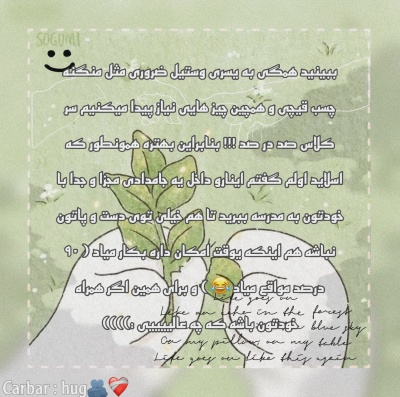 SOGUM
ببینید همگی یه یسری وستیل ضروری مثل منگنه
چسب قیچی و همچین چیز هایی نیاز پیدا میکنیم سر
کلاس صد در صد !!! بنابراین بهتره همونطور که
اسلاید اولم گفتم اینارو داخل یه جامدادی مجزا و جدا با
خودتون به مدرسه ببرید تا هم خیلی توی دست و پاتون
نباشه هم اینکه یوقت امکان داره بکار میاد ( ۹۰
درصد مواقع میاد😂 ) و برای همین اگر همراه
خودتون باشه که چه عالیییییی :)))))
Life goes on
Like an echo in the forest
blue sky
On my pillow, on my table
Life goes on like this again
Carbar : hug🫂❤️‍🩹